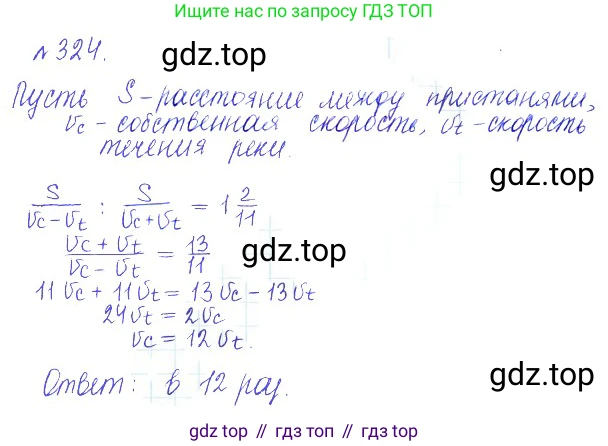 Ищите нас по запросу ГДЗ ТОП
№ 324.
gdz.top
Пусть S - расстояние между пристанями,
υc - собственная скорость, υt - скорость
течения реки.
gdz.top
S/(υc - υt) : S/(υc + υt) = 1 2/11
(υc + υt)/(υc - υt) = 13/11
gdz.top
11υc + 11υt = 13υc - 13υt
24υt = 2υc
υc = 12υt.
gdz.top
Ответ: в 12 раз.
gdz.top
gdz.top // gdz.top // gdz.top